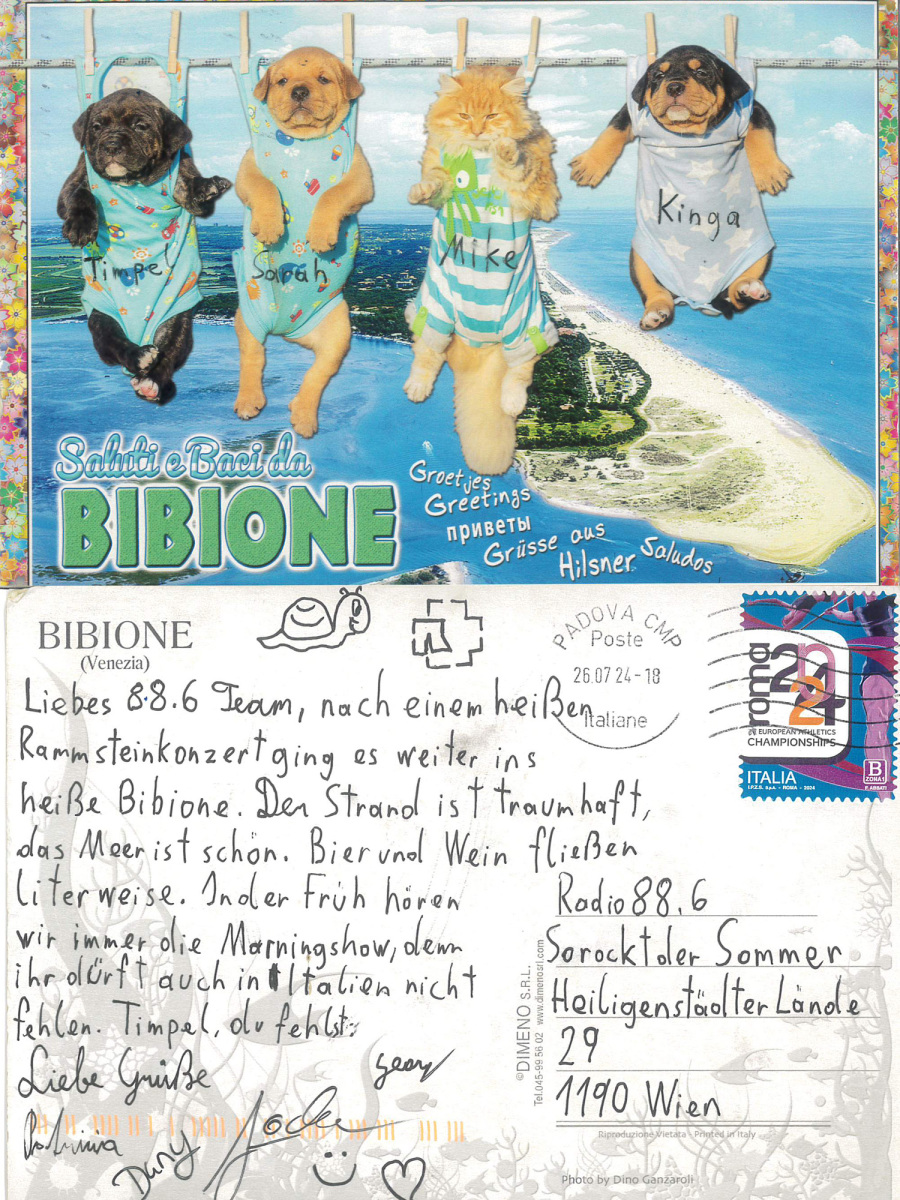 Timpel
Sarah
Mike
Kinga
Saluti e Baci da
BIBIONE
Groetjes
Greetings
приветы
Grüsse aus
Hilsner
Saludos
BIBIONE
(Venezia)
PADOVA CMP
Poste
26.07 24-18
Italiane
roma
2024
EUROPEAN ATHLETICS
CHAMPIONSHIPS
ITALIA
B
ZONA 1
I.P.Z.S. S.p.A. - ROMA - 2024
F. ABBATI
Liebes 88.6 Team, nach einem heißen
Rammsteinkonzert ging es weiter ins
heiße Bibione. Der Strand ist traumhaft,
das Meer ist schön. Bier und Wein fließen
literweise. In der Früh hören
wir immer die Morningshow, denn
ihr dürft auch in Italien nicht
fehlen. Timpel, du fehlst.
Liebe Grüße
Dany
Radio 88.6
So rockt der Sommer
Heiligenstädter Lände
29
1190 Wien
© DIMENO S.R.L.
Tel.045-99 56 02 www.dimenosrl.com
Riproduzione Vietata - Printed in Italy
Photo by Dino Ganzaroli